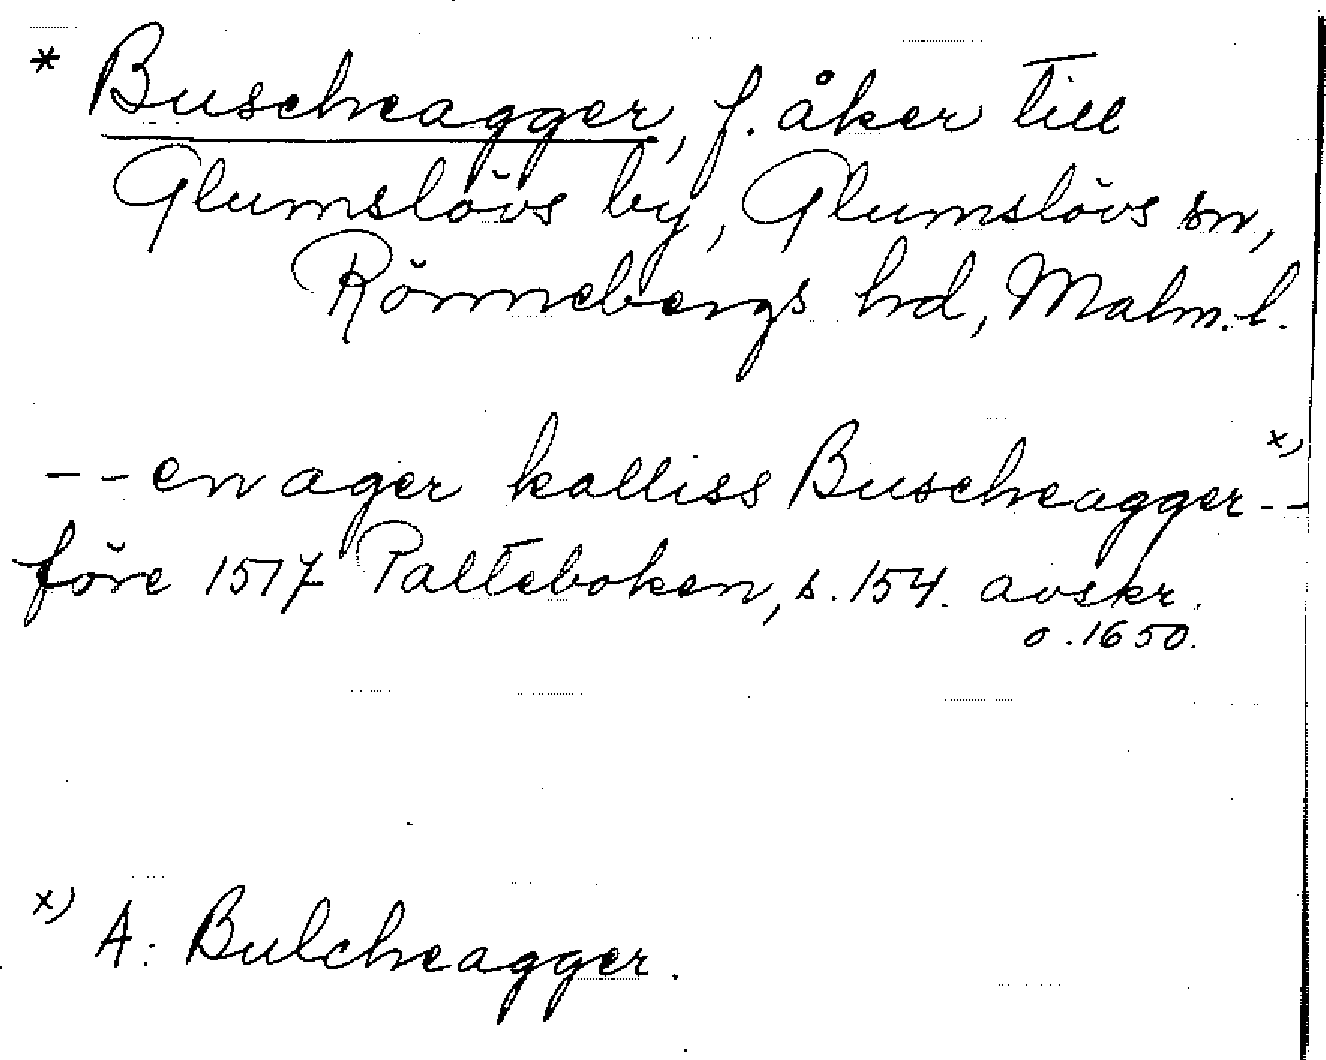 * Buscheagger, f. åker till
Glumslövs by, Glumslövs sn,
Rönnebergs hd, Malm.l.
-- en ager kalliss Buscheagger x) --
före 1517 Palteboken, s. 154. avskr.
o. 1650.
x) A: Bulcheagger.